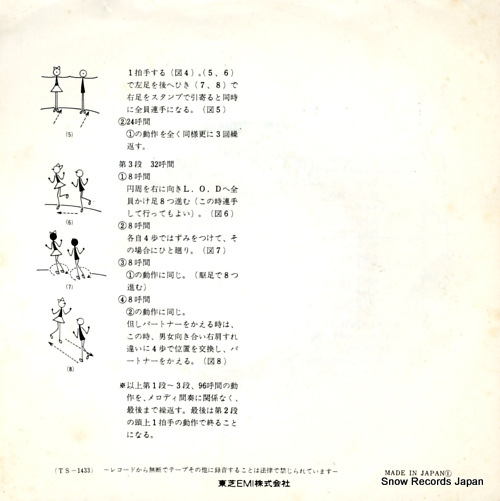 1拍手する(図4)。(5、6)
で左足を後へひき(7、8)で
右足をスタンプで引寄ると同時
に全員連手になる。(図5)
②24呼間
①の動作を全く同様更に3回繰
返す。
(5)
第3段 32呼間
①8呼間
円周を右に向きL.O.Dへ全
員かけ足8つ進む(この時連手
して行ってもよい)。(図6)
(6)
②8呼間
各自4歩ではずみをつけて、そ
の場合にひと廻り。(図7)
(7)
③8呼間
①の動作に同じ。(駆足で8つ
進む)
④8呼間
②の動作に同じ。
但しパートナーをかえる時は、
この時、男女向き合い右肩すれ
違いに4歩で位置を交換し、パ
ートナーをかえる。(図8)
(8)
※以上第1段~3段、96呼間の動
作を、メロディ間奏に関係なく、
最後まで繰返す。最後は第2段
の頭上1拍手の動作で終ること
になる。
(TS-1433) ~レコードから無断でテープその他に録音することは法律で禁じられています~
MADE IN JAPAN
東芝EMI株式会社
Snow Records Japan